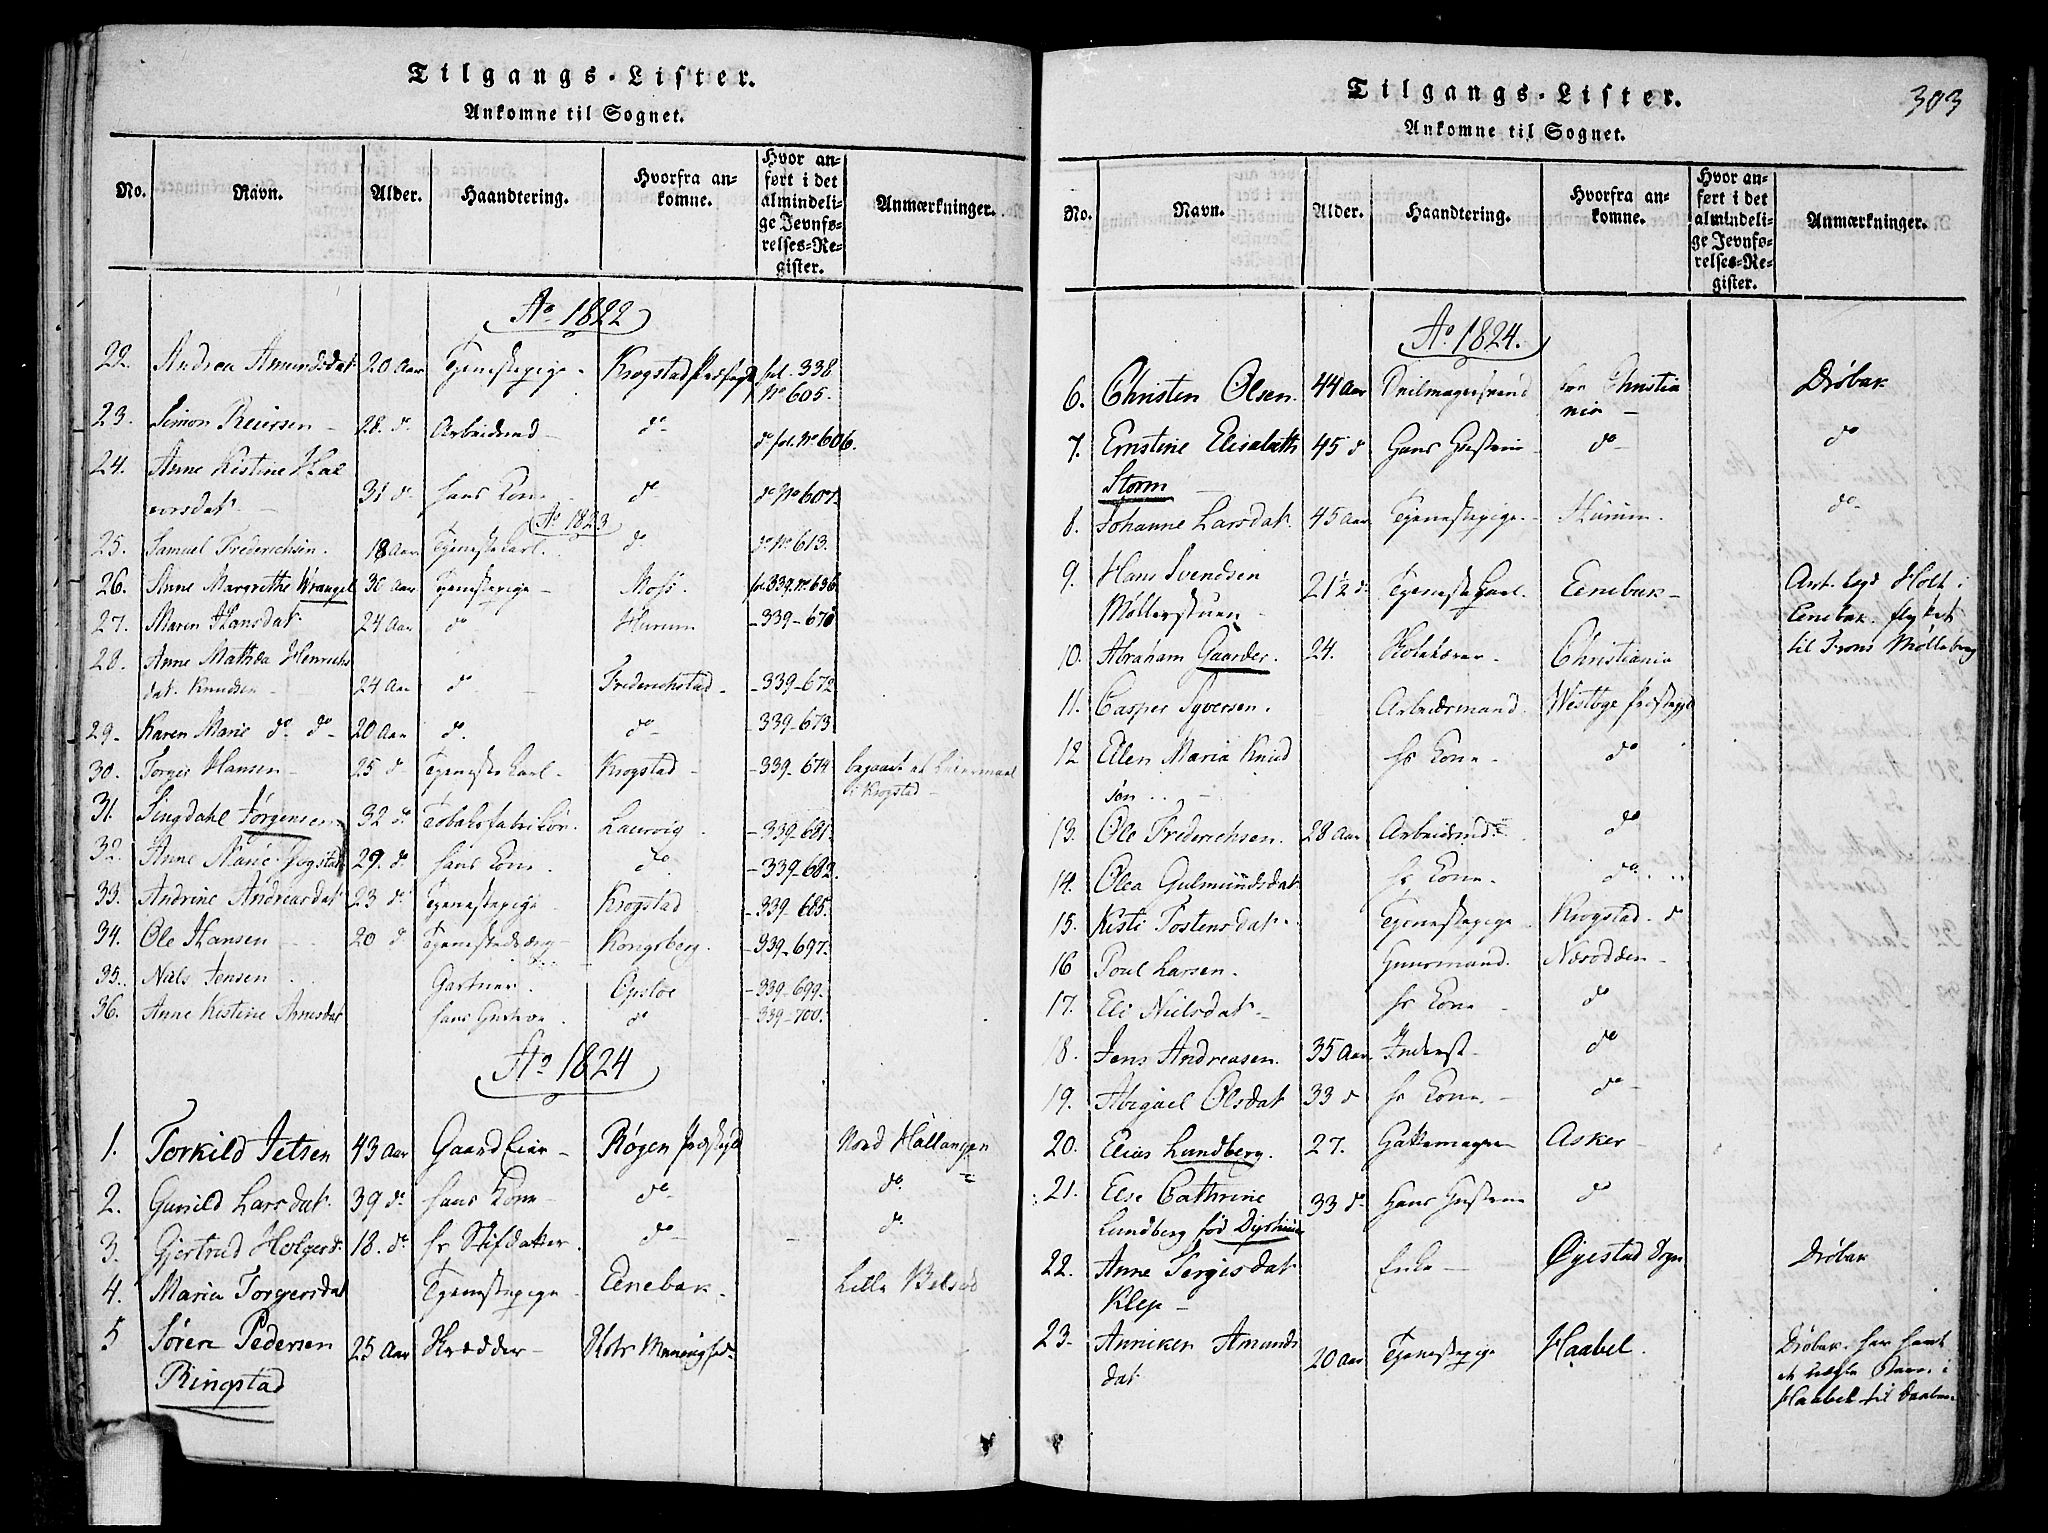 Tilgangs-Lister.
Ankomne til Sognet.
No. Navn. Alder. Haandtering. Hvorfra ankomne. Hvor anført i det almindelige Jevnførelses-Register. Anmærkninger.
Ao 1822
22. Andrea Amundsdat 20 Aar Tjenestepige Krogstad Præstegd fol. 338 No 605.
23. Simon Reiersen 28. do Arbeidsmd do do fol. No 606.
24. Anne Kistine Hal
vorsdat. 31 do hans Kone do do No 607.
Ao 1823
25. Samuel Frederichsen. 18 Aar Tjenestekarl. do do No 613.
26. Anne Margrethe Wrangel 30 Aar Tjenestepige Moss fol 339. No 636.
27. Maren Hansdat 24 Aar do Hurum - 339 - 670
28. Anne Mathea Henrichs
dat. Knudsen 24 Aar do Frederichstad - 339 - 672
29. Karen Marie do do 20 Aar do do - 339 - 673
30. Torger Hansen 25 do Tjenestekarl Krogstad - 339 - 674 begaaet et Leiermaal
i Krogstad
31. Lingdahl Jørgensen 32 do Tobaksfabrikør. Laurvig. - 339 - 681.
32. Anne Marie 29. do hans Kone do - 339 - 682.
33. Andrine Andreasdat 23 do Tjenestepige Krogstad - 339 - 685.
34. Ole Hansen 20 do Tjenestedreng Kongsberg. - 339 - 697.
35. Niels Jensen Gartner. Opsloe - 339 - 699.
36. Anne Kistine Arnesdat hans Hustroe do - 339 - 700.
Ao 1824
1. Torkild Jetsen 43 Aar Gaard Eier Røgen Præstegd Nord Hallangen
2. Gunild Larsdat. 39 do hans Kone do do
3. Gjertrud Holgersd. 18. do hs Stifdatter. do do
4. Maria Torgersdat Tjenestepige Eenebak. Lille
5 Søren Pedersen 25 Aar Skrædder
Ringstad
Tilgangs-Lister.
Ankomne til Sognet.
303
No. Navn. Alder. Haandtering. Hvorfra ankomne. Hvor anført i det almindelige Jevnførelses-Register. Anmærkninger.
Ao 1824.
6. Christen Olsen. 44 Aar Christia
nia Drøbak
7. Ernstine Elisabeth 45 do Hans Hustrue do do
Storm
8. Johanne Larsdat. 45 Aar Tjenestepige Hurum. do
9. Hans Svendsen
Møllerstuen 21 1/2 do Tjenestekarl. Eenebak
Holt i
Eenebak. flyttet
til
10. Abraham Gaarder. 24. Christiania
11. Casper Syversen. Arbeidsmand. Westbye Præstegd
12 Elen Maria Knud
sen hs Kone do
13. Ole Frederichsen. 28 Aar Arbeidsmd do
14. Olea Gulmundsdat hs Kone do
15. Kisti Tostensdat. Tjenestepige Krogstad. do
16 Poul Larsen. Huusmand. Næsodden
17. Eli Nielsdat hs Kone do
18. Jens Andreasen. 35 Aar Inderst do
19. Abigael Olsdat 33 do hs Kone. do
20. Elias Lundberg. 27. Asker
21. Else Cathrine 33 do Hans Hustrue do
Lundberg fød
22. Anne Tergisdat Enke Øyestad Sogn Drøbak
Klep
23. Anniken Amunds
dat 20 Aar Tjenestepige Haabel. Drøbak. har havt
et uægte Barn i
Haabel